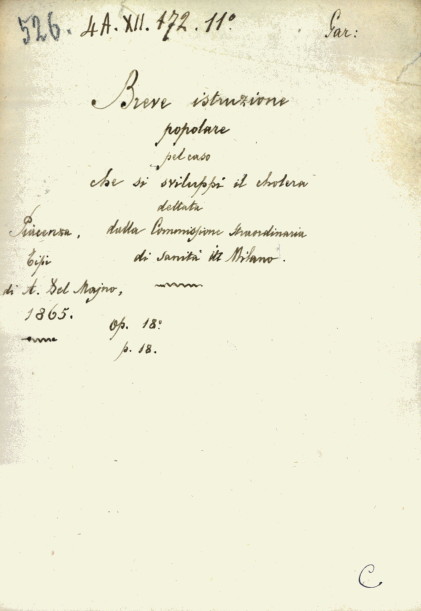 526. 4A. XII. 172. 11º
Gar:
Breve istruzione
popolare
pel caso
che si sviluppi il cholera
dettata
dalla Commissione straordinaria
di sanità in Milano.
Piacenza,
Tipi
di A. Del Majno,
1865.
op. 18º
p. 18.
C